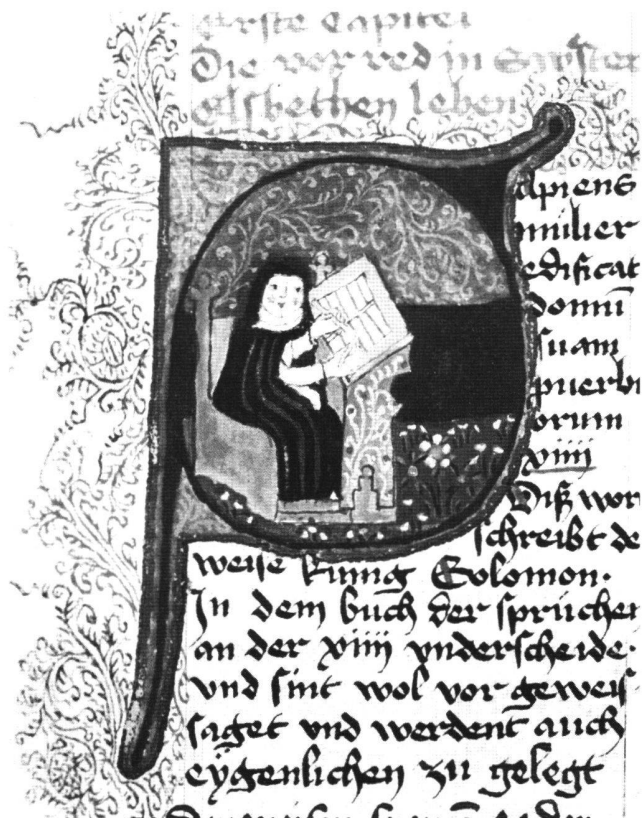 erste Capitel
Die vor red in Swster
elsbethen leben
Sapiens
mulier
edificat
domū
suam
puerbi
orum
xiiii
Diß wor
schreibt de
weise kunig Solomon.
In dem buch der sprüchen
an der xiiii vnderscheide.
vnd sint wol vor geweis
saget vnd werdent auch
eygenlichen zu gelegt